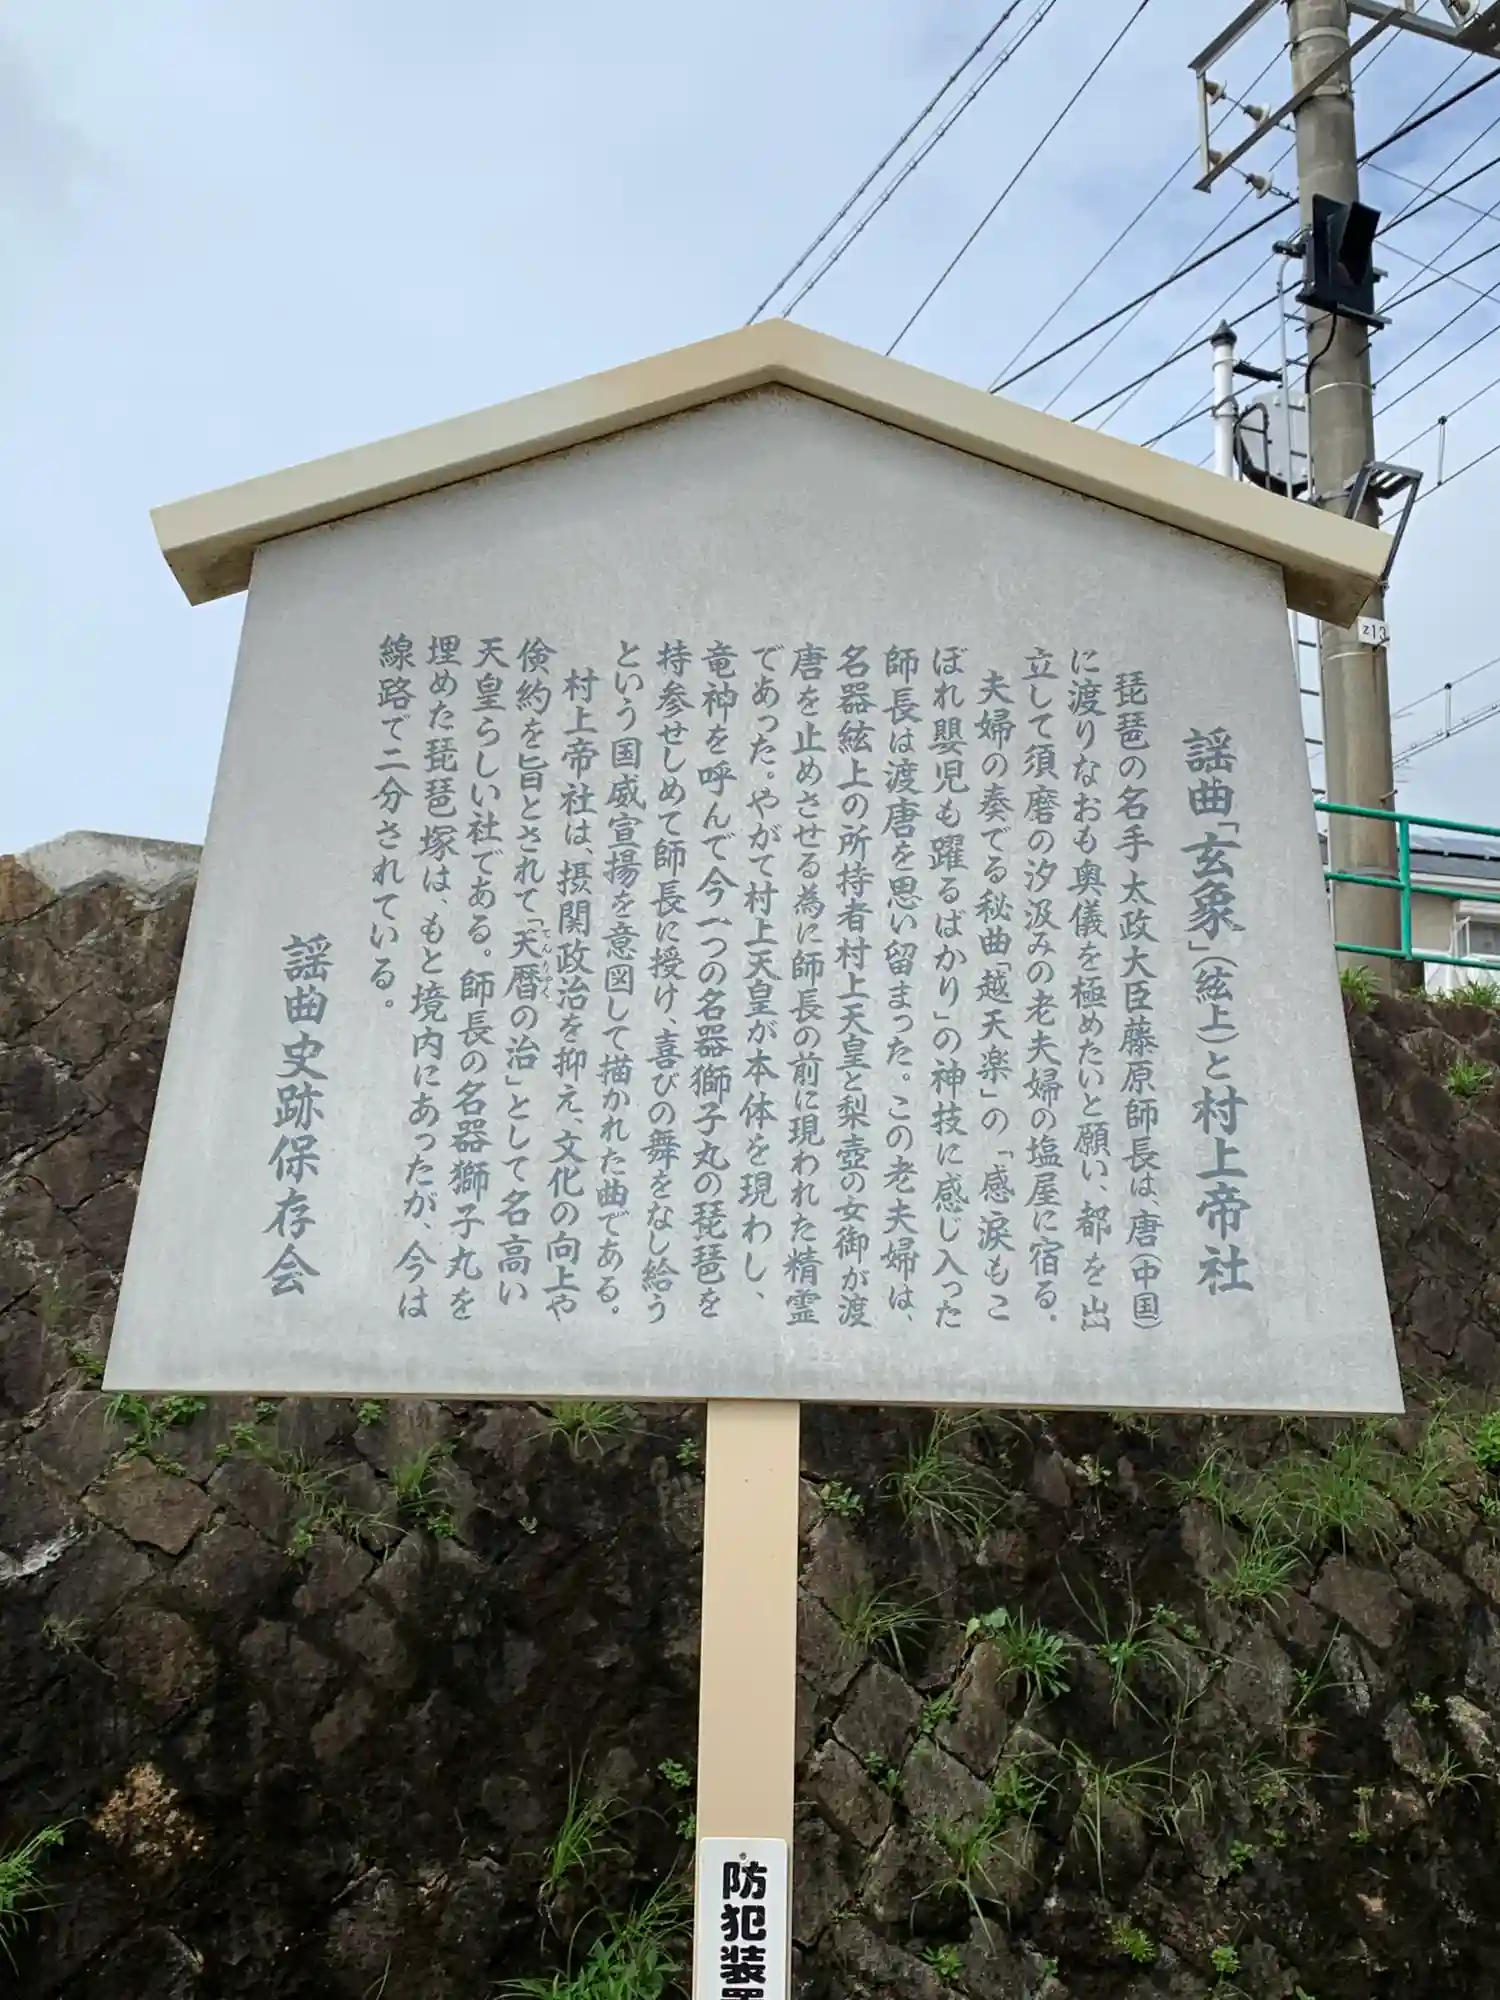 謡曲「玄象」(絃上)と村上帝社
琵琶の名手太政大臣藤原師長は、唐(中国)
に渡りなおも奥儀を極めたいと願い、都を出
立して須磨の汐汲みの老夫婦の塩屋に宿る。
夫婦の奏でる秘曲「越天楽」の「感涙もこ
ぼれ嬰児も躍るばかり」の神技に感じ入った
師長は渡唐を思い留まった。この老夫婦は、
名器絃上の所持者村上天皇と梨壺の女御が渡
唐を止めさせる為に師長の前に現われた精霊
であった。やがて村上天皇が本体を現わし、
竜神を呼んで今一つの名器獅子丸の琵琶を
持参せしめて師長に授け、喜びの舞をなし給う
という国威宣揚を意図して描かれた曲である。
村上帝社は、摂関政治を抑え、文化の向上や
倹約を旨とされて「天暦の治」として名高い
てんりゃく
天皇らしい社である。師長の名器獅子丸を
埋めた琵琶塚は、もと境内にあったが、今は
線路で二分されている。
謡曲史跡保存会
防犯装置
z13